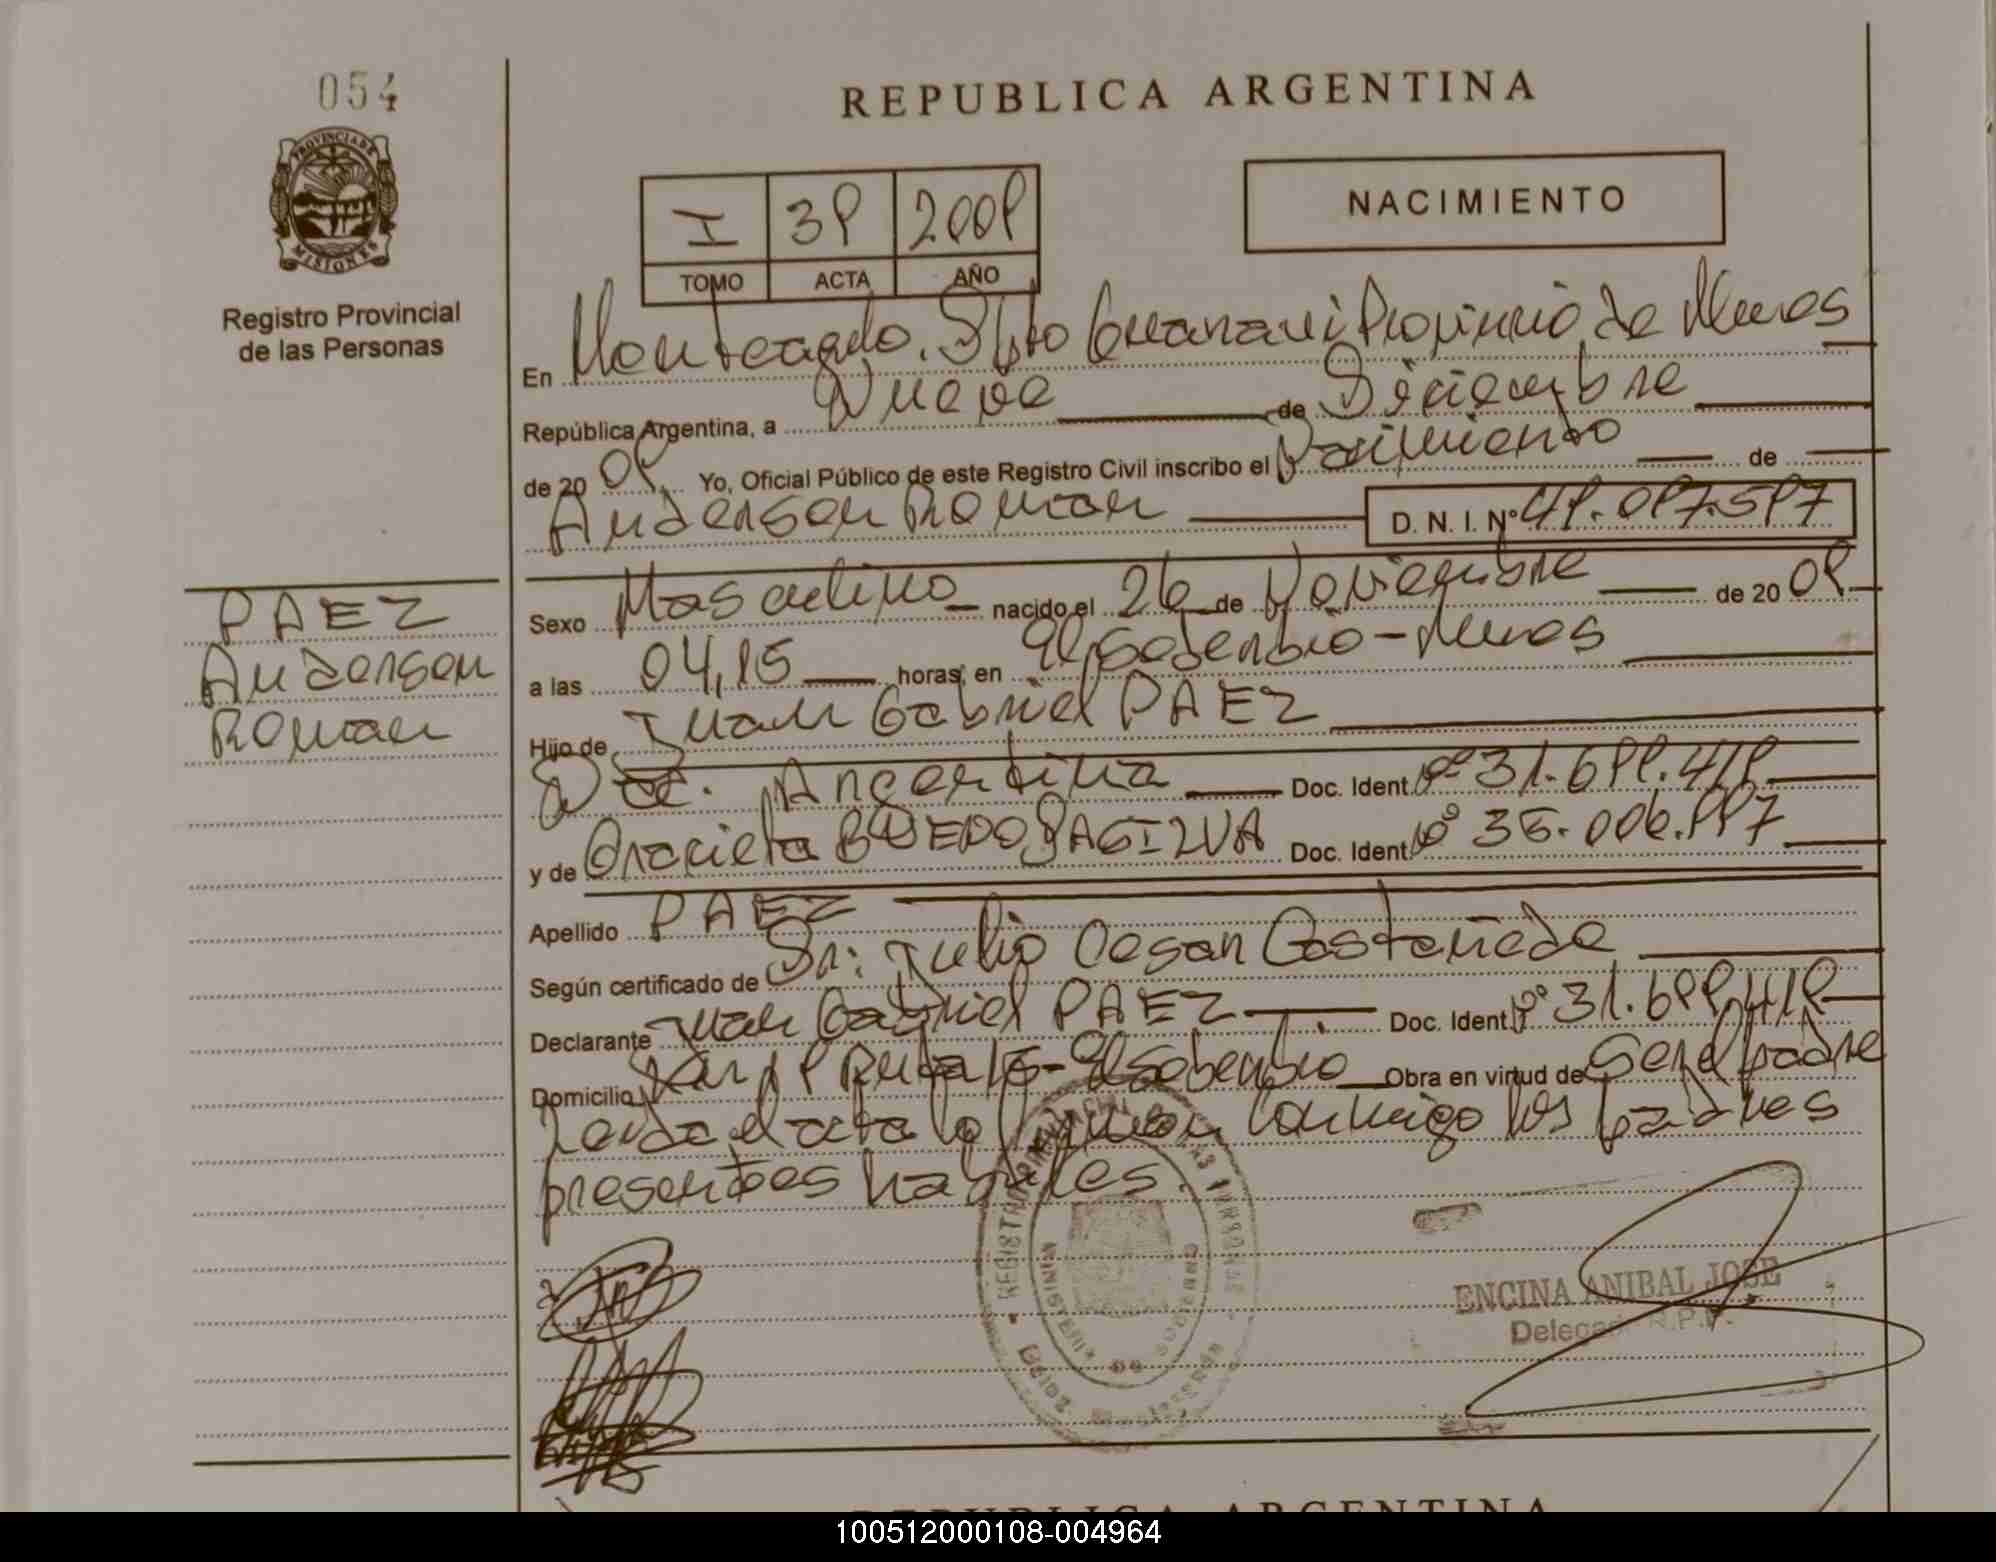 054
REPUBLICA ARGENTINA
PROVINCIA DE
MISIONES
Registro Provincial
de las Personas
I 39 2009
TOMO ACTA AÑO
NACIMIENTO
En Monteagudo. Dpto Guarani Provincia de Mnes
República Argentina, a Nueve de Diciembre
de 20 09 Yo, Oficial Público de este Registro Civil inscribo el Nacimiento de
Anderson Roman D. N. I. Nº 49.097.597
PAEZ
Anderson
Roman
Sexo Masculino nacido el 26 de Noviembre de 20 09
a las 04,15 horas, en El Soberbio - Mnes
Hijo de Juan Gabriel PAEZ
Nac. Argentina Doc. Ident. Nº 31.699.419
y de Graciela Doc. Ident. Nº 35.006.997
Apellido PAEZ
Según certificado de Dr: Julio Cesar Castañeda
Declarante Juan Gabriel PAEZ Doc. Ident. Nº 31.699.419
Domicilio Ruta 15 - El Soberbio Obra en virtud de ser el padre
Leida el acta lo firman conmigo los padres
presentes habiles.
MINISTERIO DE GOBIERNO
ENCINA ANIBAL JOSE
Delegado R.P.P.
REPUBLICA ARGENTINA
100512000108-004964